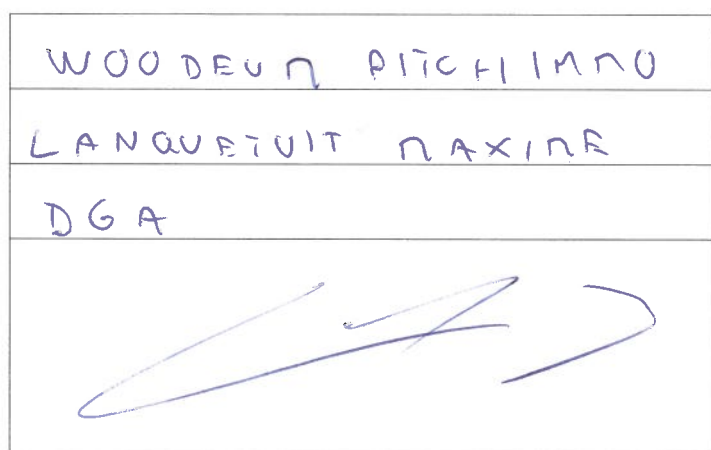 WOODEUM PITCH IMMO
LANQUETUIT MAXIME
DGA